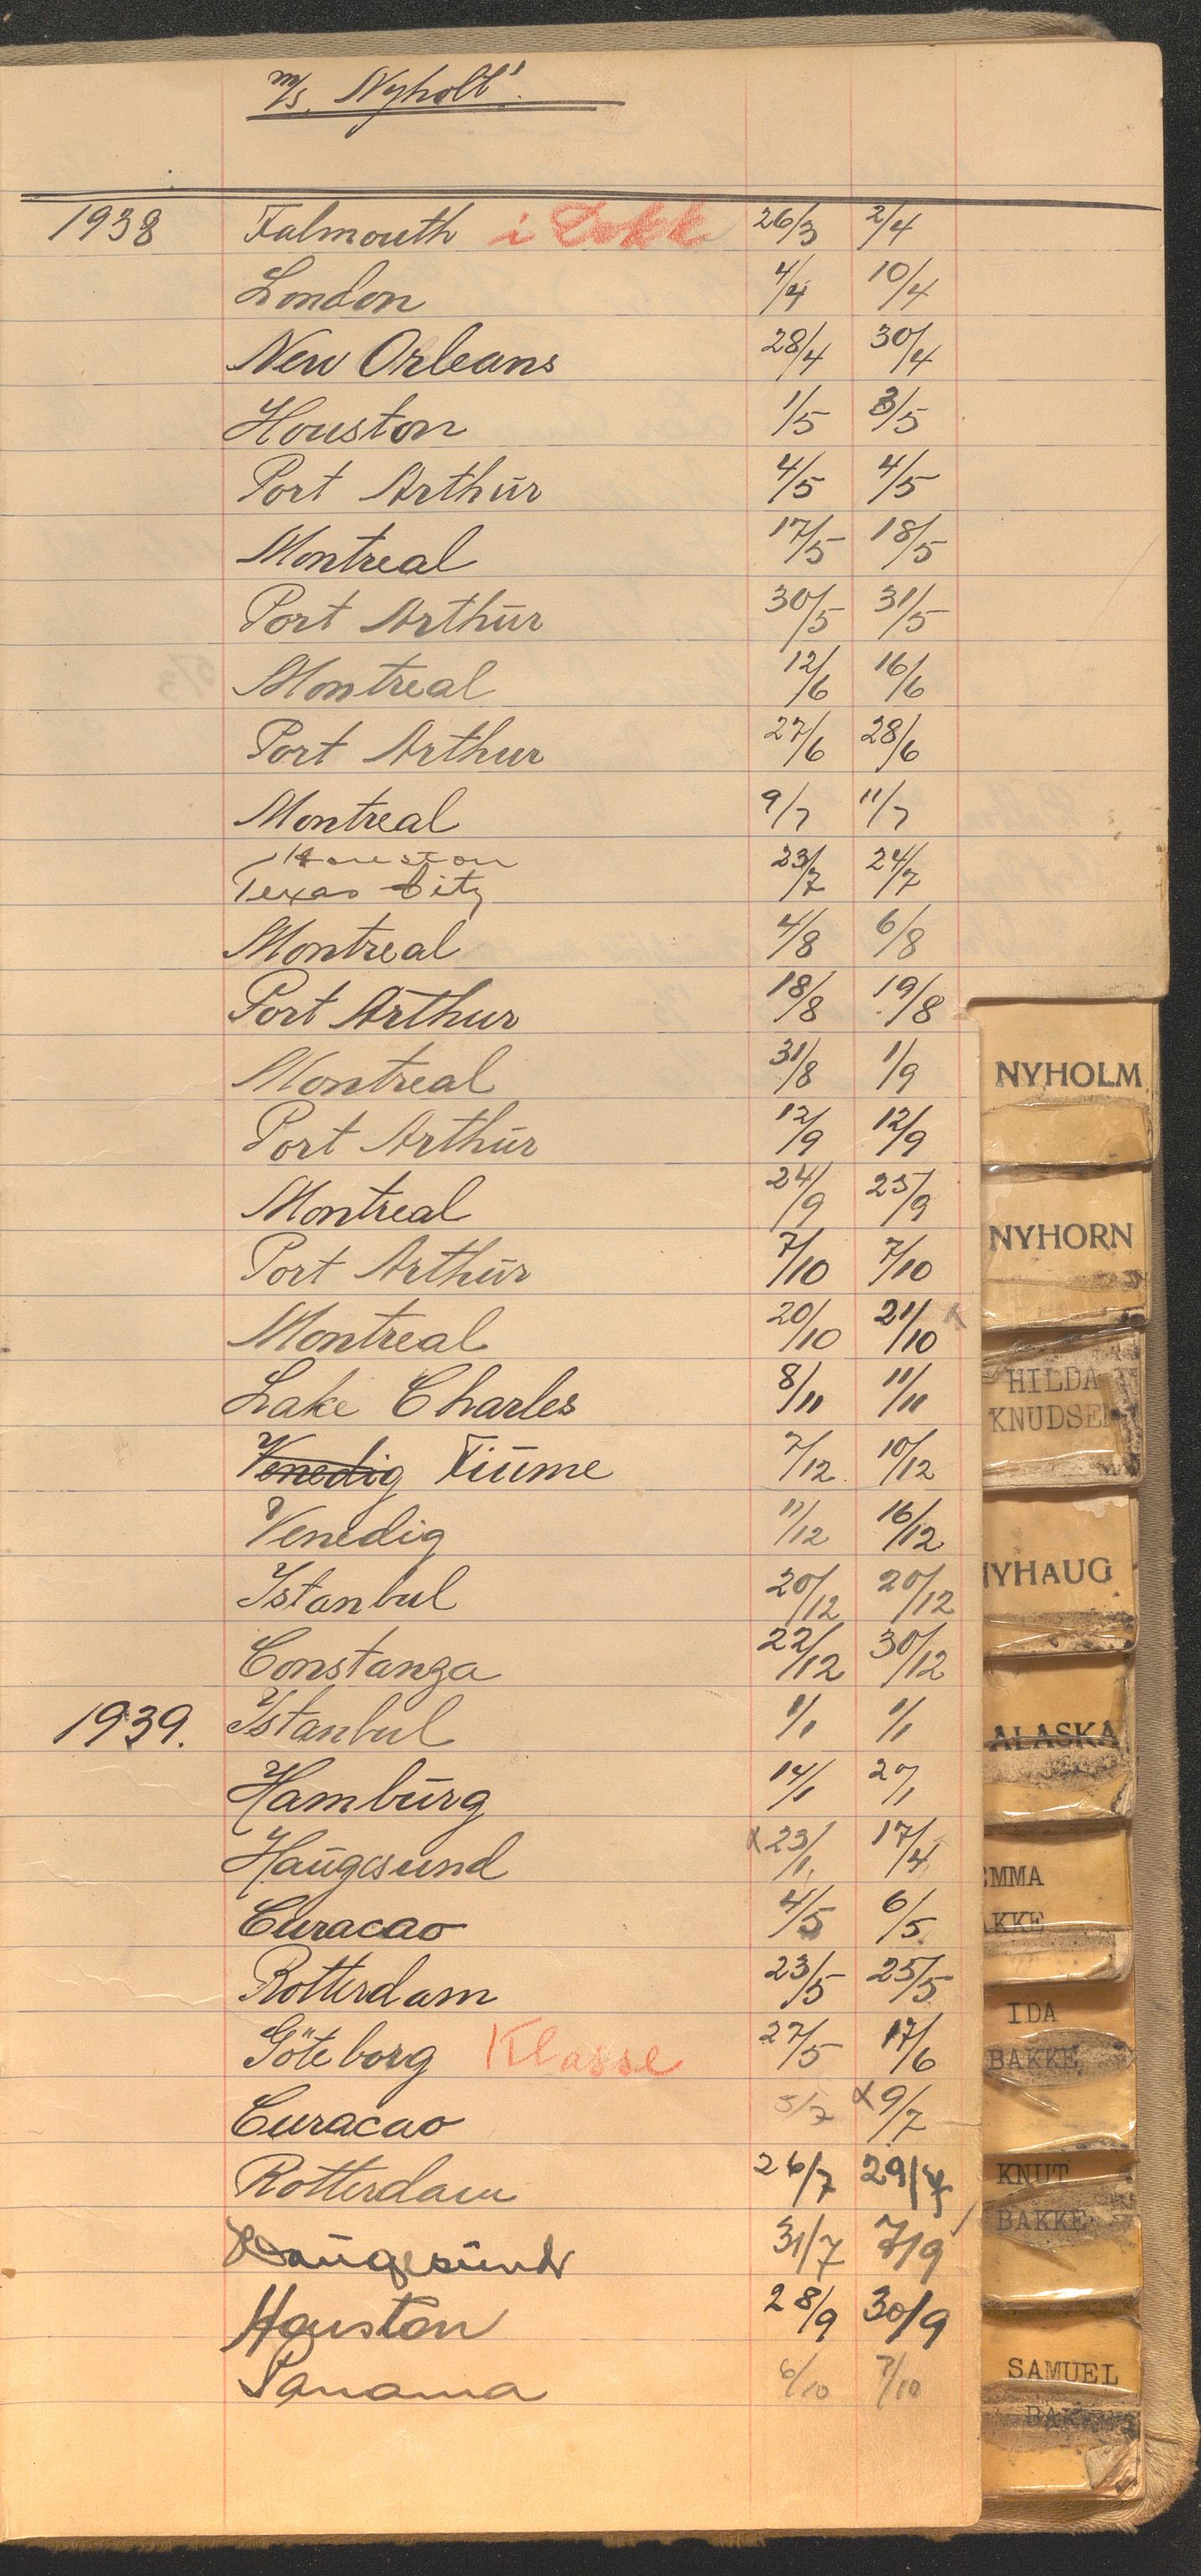 m/s. Nyholt".
1938 Falmouth i Dokk 26/3 2/4
London 4/4 10/4
New Orleans 28/4 30/4
Houston 1/5 3/5
Port Arthur 4/5 4/5
Montreal 17/5 18/5
Port Arthur 30/5 31/5
Montreal 12/6 16/6
Port Arthur 27/6 28/6
Montreal 9/7 11/7
Houston
Texas City 23/7 24/7
Montreal 4/8 6/8
Port Arthur 18/8 19/8
Montreal 31/8 1/9
Port Arthur 12/9 12/9
Montreal 24/9 25/9
Port Arthur 7/10 7/10
Montreal 20/10 21/10
Lake Charles 8/11 11/11
Venedig Fiume 7/12 10/12
Venedig 11/12 16/12
Istanbul 20/12 20/12
Constanza 22/12 30/12
1939. Istanbul 1/1 1/1
Hamburg 14/1
Haugesund x 23/1 17/4
Curacao 4/5 6/5
Rotterdam 23/5 25/5
Göteborg Klasse 27/5 17/6
Curacao 5/7 x 9/7
Rotterdam 26/7
Haugesund 31/7 7/9
Houston 28/9 30/9
Panama 6/10 7/10
NYHOLM
NYHORN
HILDA
KNUDSEN
NYHAUG
ALASKA
EMMA
AKKE
IDA
BAKKE
KNUT
BAKKE
SAMUEL
BAK